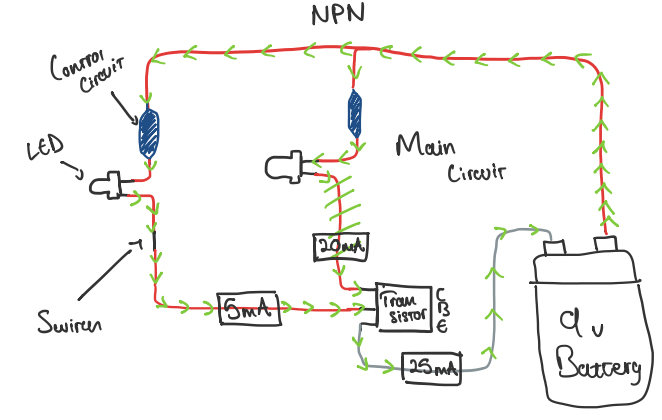 NPN
Control
Circuit
LED
Main
Circuit
20mA
5mA
Tran
sistor
C
B
E
25mA
9v
Battery